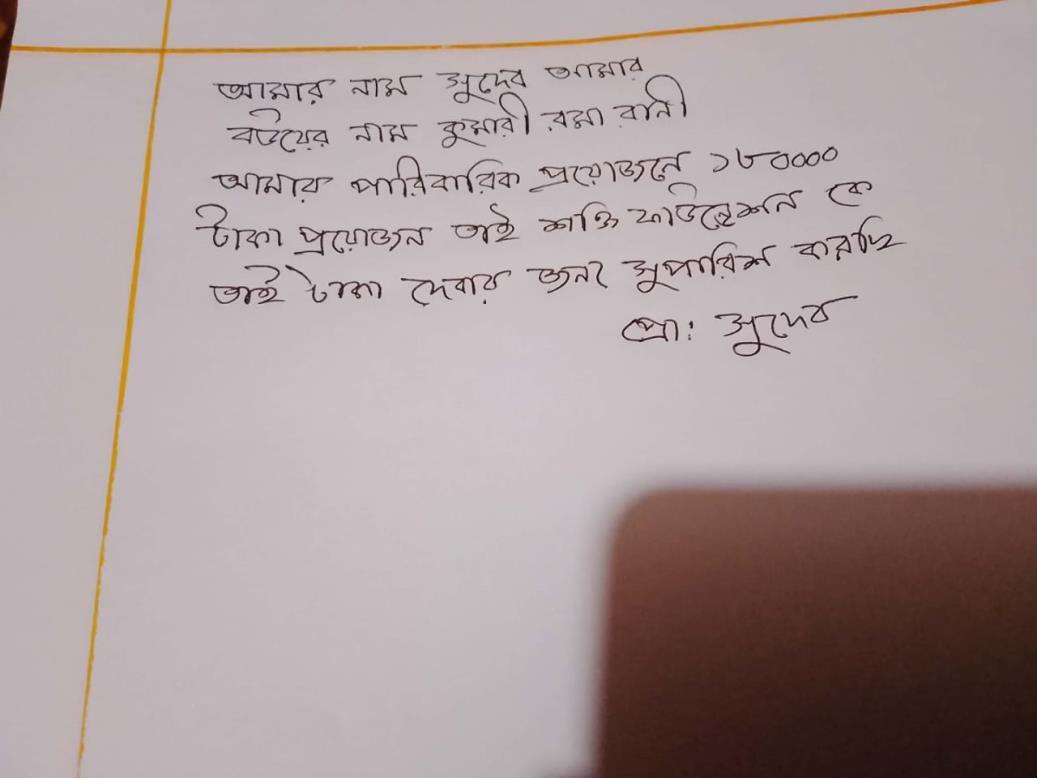 আমার নাম সুদেব আমার
বউয়ের নাম কুমারী রমা রানী
আমার পারিবারিক প্রয়োজনে ১৮০০০০
টাকা প্রয়োজন তাই শক্তি ফাউন্ডেশন কে
তাই টাকা দেবার জন্য সুপারিশ করছি
প্রো: সুদেব